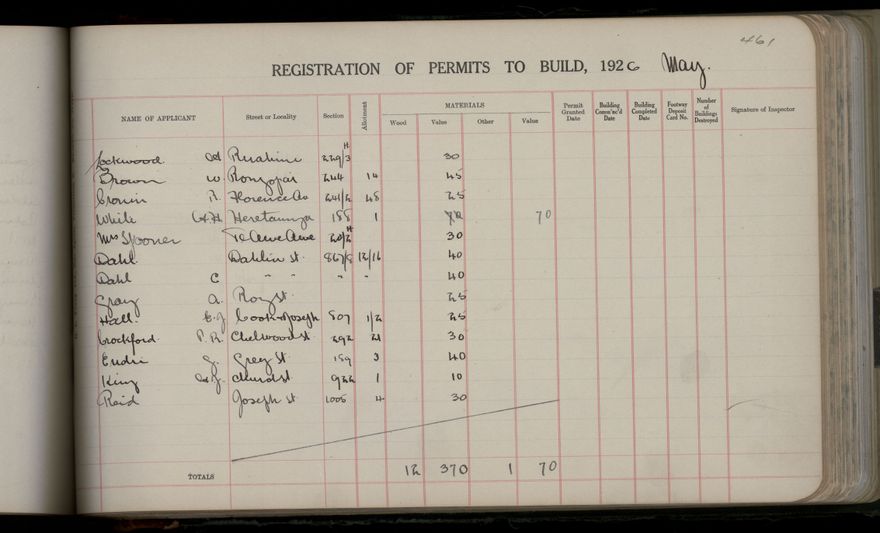 461
REGISTRATION OF PERMITS TO BUILD, 1926 May.
NAME OF APPLICANT Street or Locality Section Allotment MATERIALS Permit Granted Date Building Comm'nc'd Date Building Completed Date Footway Deposit Card No. Number of Buildings Destroyed Signature of Inspector
Wood Value Other Value
Lockwood. Ruahine 229/3 30
Brown W. Rongopai 244 14 45
Cronin R. Florence Av 241/2 48 25
White Heretaunga 188 1 70
Mrs Spooner Te Awe Awe 30
Dahl. Dahlin st. 867/8 12/16 40
Dahl C " " " " 40
Gray A. Roy st. 25
Hall. C.J. Cook & Joseph 507 1/2 25
Crockford. P.R. Chelwood st 292 21 30
J. Grey St 159 3 40
King Church st 922 1 10
Reid Joseph st 1005 4 30
TOTALS 12 370 1 70